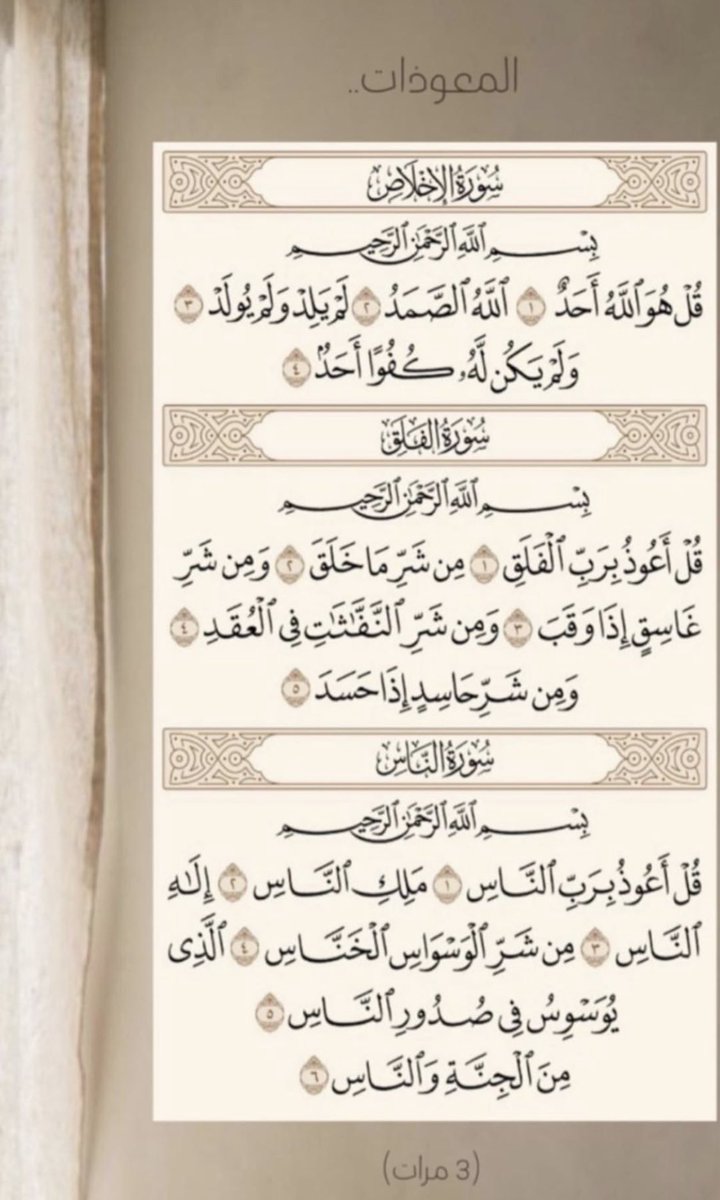 المعوذات..
سُورَةُ الإِخْلَاصِ
بِسْمِ ٱللَّهِ ٱلرَّحْمَٰنِ ٱلرَّحِيمِ
قُلْ هُوَ ٱللَّهُ أَحَدٌ ١ ٱللَّهُ ٱلصَّمَدُ ٢ لَمْ يَلِدْ وَلَمْ يُولَدْ ٣
وَلَمْ يَكُن لَّهُۥ كُفُوًا أَحَدٌۢ ٤
سُورَةُ الفَلَقِ
بِسْمِ ٱللَّهِ ٱلرَّحْمَٰنِ ٱلرَّحِيمِ
قُلْ أَعُوذُ بِرَبِّ ٱلْفَلَقِ ١ مِن شَرِّ مَا خَلَقَ ٢ وَمِن شَرِّ
غَاسِقٍ إِذَا وَقَبَ ٣ وَمِن شَرِّ ٱلنَّفَّٰثَٰتِ فِى ٱلْعُقَدِ ٤
وَمِن شَرِّ حَاسِدٍ إِذَا حَسَدَ ٥
سُورَةُ النَّاسِ
بِسْمِ ٱللَّهِ ٱلرَّحْمَٰنِ ٱلرَّحِيمِ
قُلْ أَعُوذُ بِرَبِّ ٱلنَّاسِ ١ مَلِكِ ٱلنَّاسِ ٢ إِلَٰهِ
ٱلنَّاسِ ٣ مِن شَرِّ ٱلْوَسْوَاسِ ٱلْخَنَّاسِ ٤ ٱلَّذِى
يُوَسْوِسُ فِى صُدُورِ ٱلنَّاسِ ٥
مِنَ ٱلْجِنَّةِ وَٱلنَّاسِ ٦
(3 مرات)